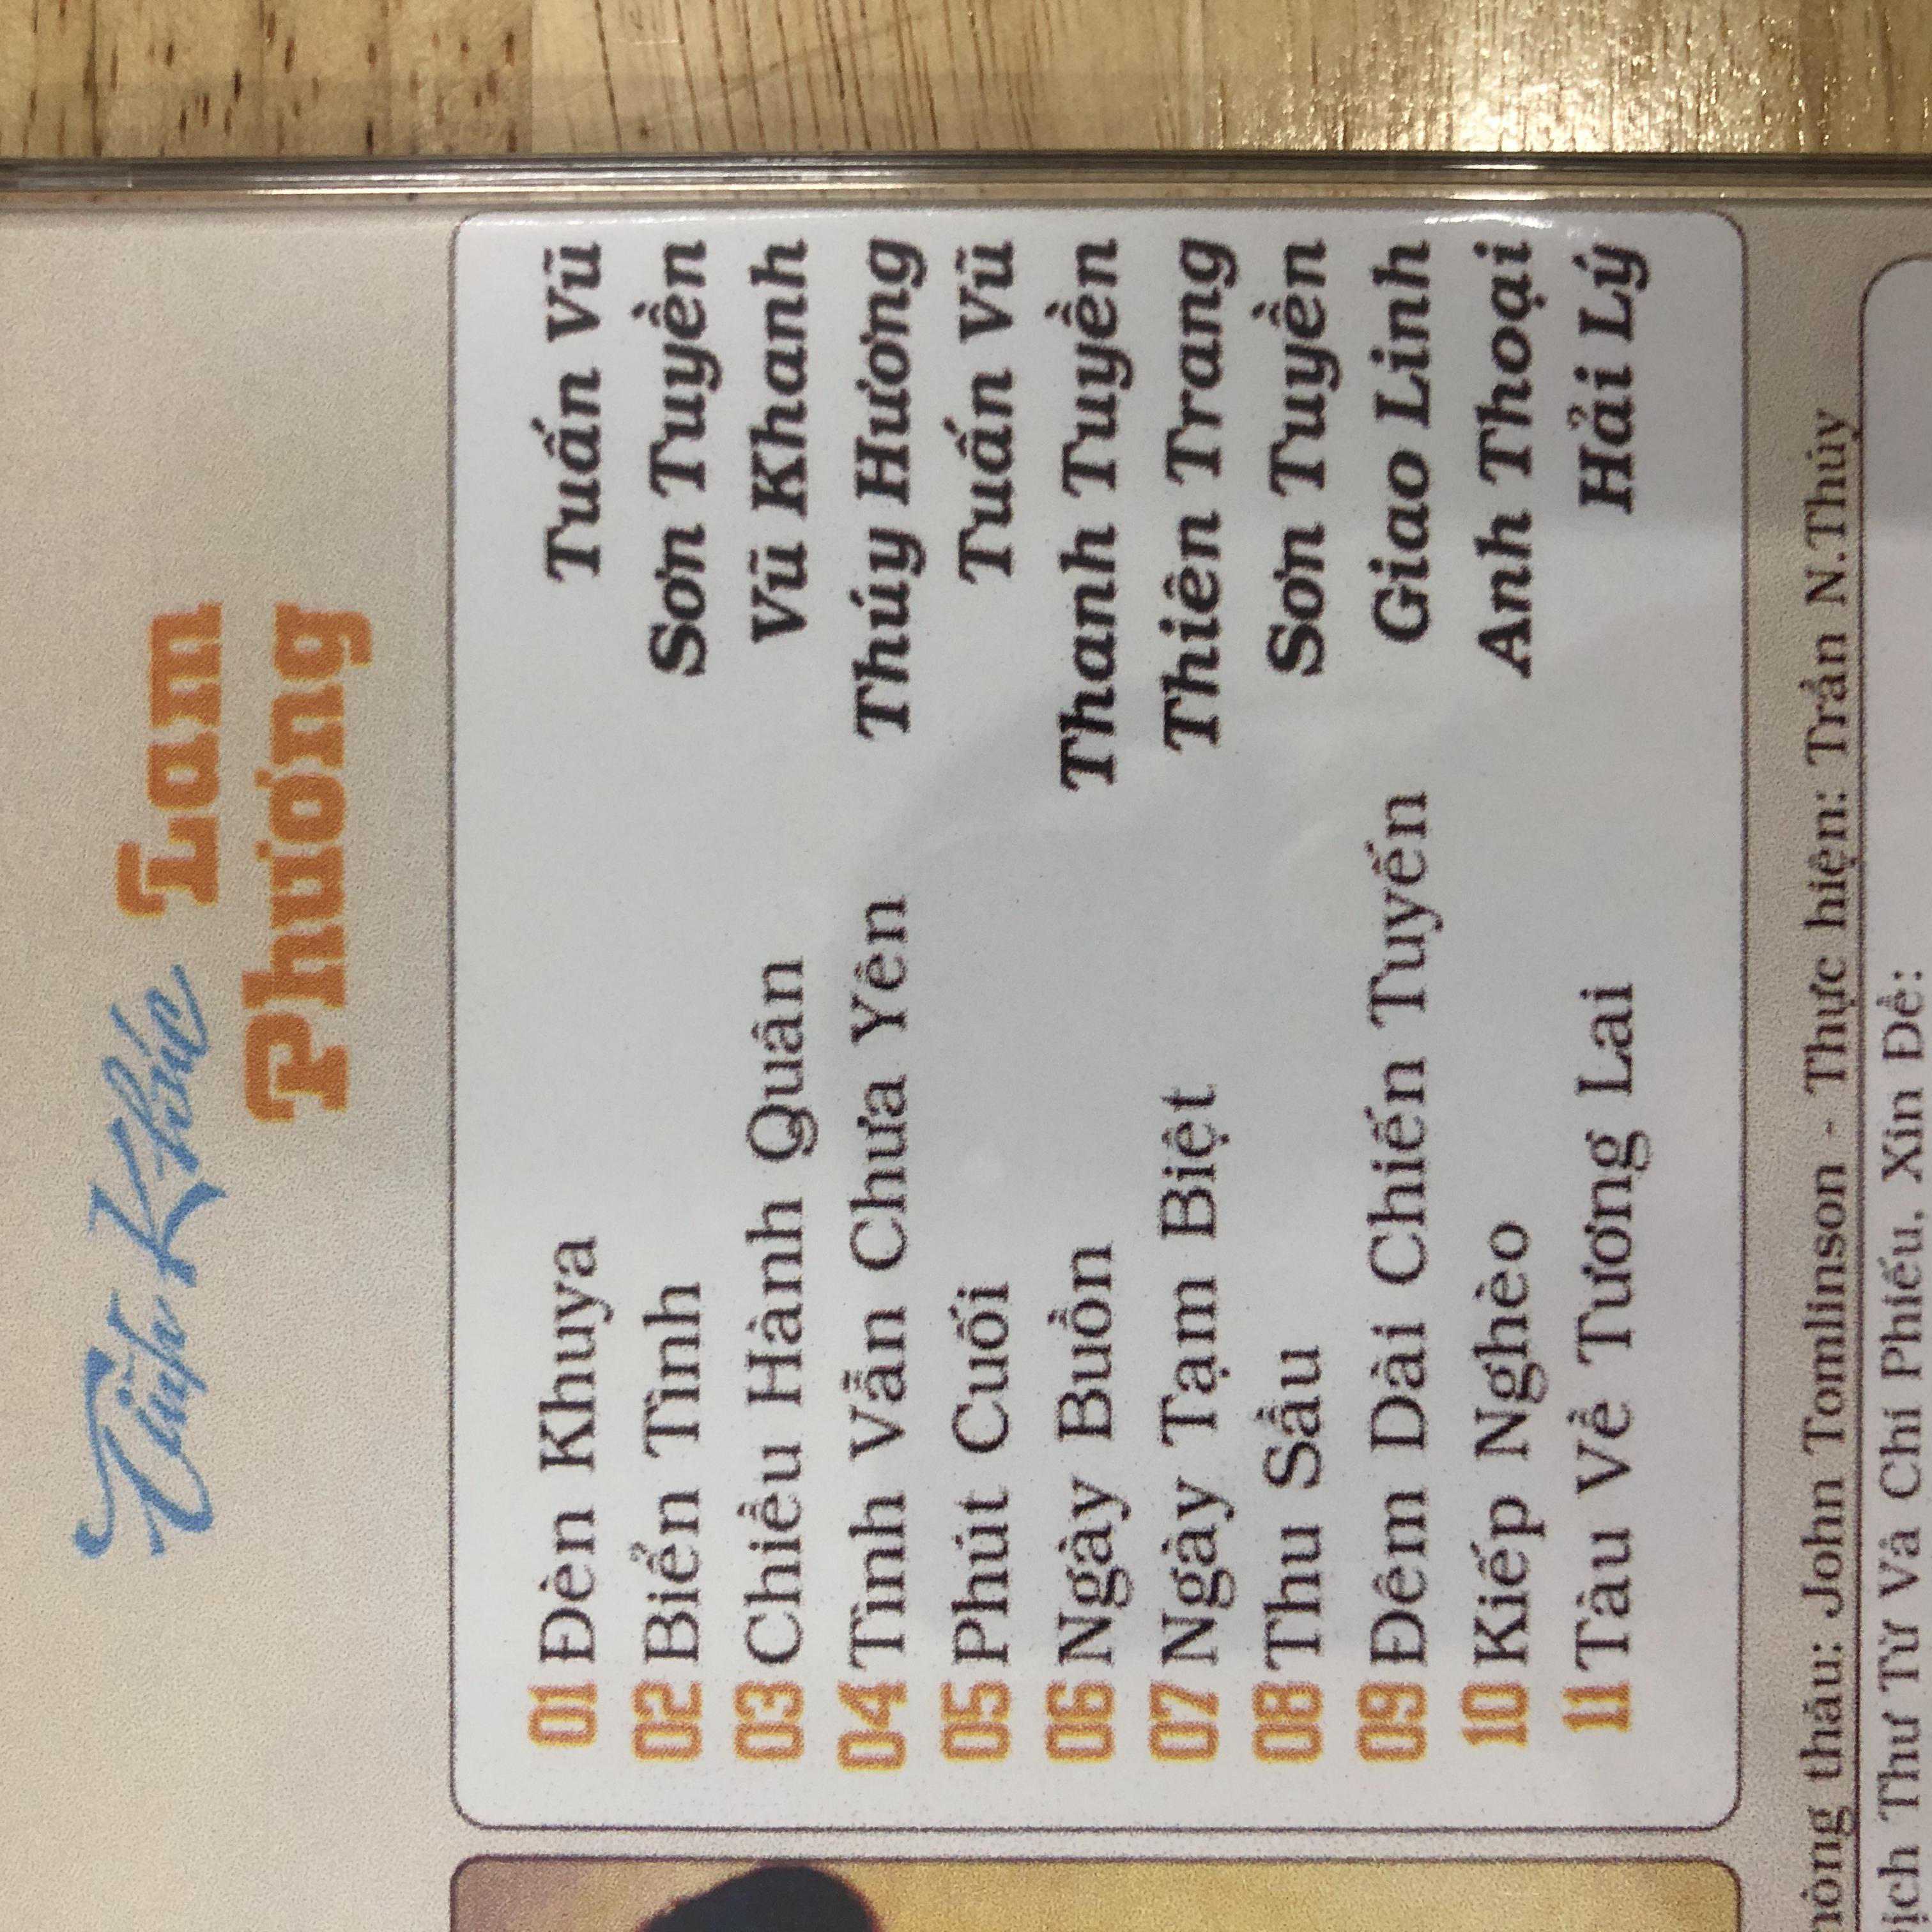 Tình Khúc Lam
Phương
01 Đèn Khuya Tuấn Vũ
02 Biển Tình Sơn Tuyền
03 Chiều Hành Quân Vũ Khanh
04 Tình Vẫn Chưa Yên Thúy Hương
05 Phút Cuối Tuấn Vũ
06 Ngày Buồn Thanh Tuyền
07 Ngày Tạm Biệt Thiên Trang
08 Thu Sầu Sơn Tuyền
09 Đêm Dài Chiến Tuyến Giao Linh
10 Kiếp Nghèo Anh Thoại
11 Tàu Về Tương Lai Hải Lý
thâu: John Tomlinson - Thực hiện: Trần N.Thủy
Thư Từ Và Chi Phiếu, Xin Đề: